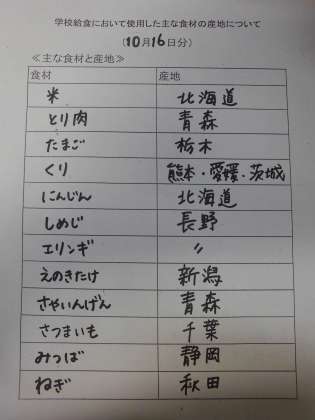 学校給食において使用した主な食材の産地について
(10月16日分)
≪主な食材と産地≫
食材 産地
米 北海道
とり肉 青森
たまご 栃木
くり 熊本・愛媛・茨城
にんじん 北海道
しめじ 長野
エリンギ 〃
えのきたけ 新潟
さやいんげん 青森
さつまいも 千葉
みつば 静岡
ねぎ 秋田